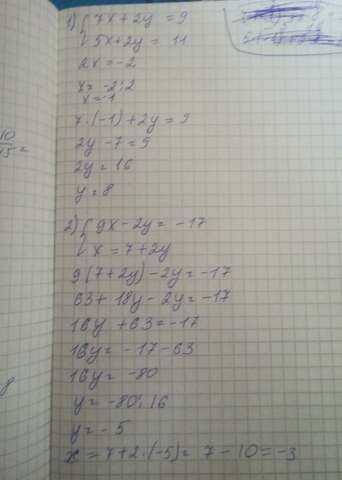 1) { 7x + 2y = 9
5x + 2y = 11
2x = -2
x = -2:2
x = -1
7·(-1) + 2y = 9
2y - 7 = 9
2y = 16
y = 8
2) { 9x - 2y = -17
x = 7 + 2y
9(7 + 2y) - 2y = -17
63 + 18y - 2y = -17
16y + 63 = -17
16y = -17 - 63
16y = -80
y = -80:16
y = -5
x = 7 + 2·(-5) = 7 - 10 = -3
10
15 =
8